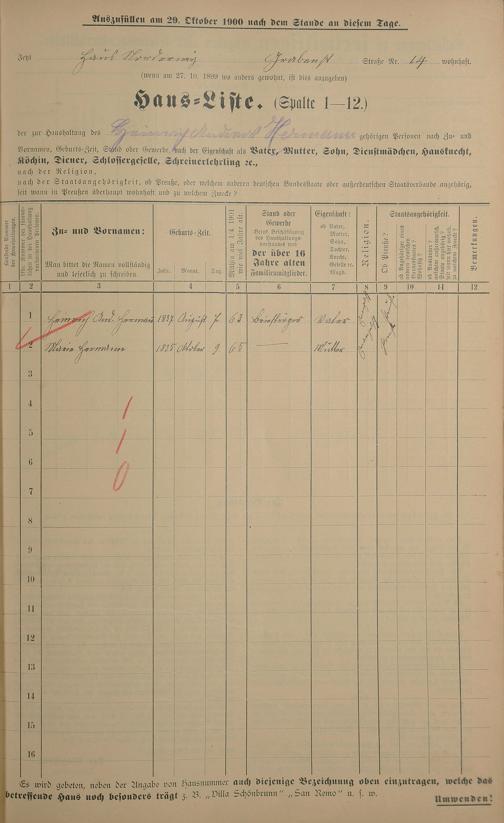 Auszufüllen am 29. Oktober 1900 nach dem Stande an diesem Tage.
Jetzt Haus Norderney Grabenst Straße Nr. 14 wohnhaft.
(wenn am 27. 10. 1899 wo anders gewohnt, ist dies anzugeben)
Haus-Liste. (Spalte 1—12.)
der zur Haushaltung des Heinrich Hermann gehörigen Personen nach Zu- und
Vornamen, Geburts-Zeit, Stand oder Gewerbe, nach der Eigenschaft als Vater, Mutter, Sohn, Dienstmädchen, Hausknecht,
Köchin, Diener, Schlossergeselle, Schreinerlehrling ꝛc.,
nach der Religion,
nach der Staatsangehörigkeit, ob Preuße, oder welchem anderen deutschen Bundesstaate oder außerdeutschen Staatsverbande angehörig,
seit wann in Preußen überhaupt wohnhaft und zu welchem Zwecke?
Zu- und Vornamen:
Man bittet die Namen vollständig und leserlich zu schreiben.
Geburts-Zeit.
Jahr. Monat. Tag.
Mithin am 1/4 1901 wie viel Jahre alt.
Stand oder Gewerbe
der über 16 Jahre alten Familienmitglieder.
Eigenschaft:
ob Vater, Mutter, Sohn, Tochter, Knecht, Geselle rc. Magd.
Religion.
Staatsangehörigkeit.
Ob Preuße?
Bemerkungen.
1 2 3 4 5 6 7 8 9 10 11 12
1 Heinrich And. Hermann 1837 August 7 63 Briefträger Vater
2 Marie Hermann 1835 Oktober 9 65 — Mutter
3
4 1
5 1
6 0
7
8
9
10
11
12
13
14
15
16
Es wird gebeten, neben der Angabe von Hausnummer auch diejenige Bezeichnung oben einzutragen, welche das
betreffende Haus noch besonders trägt z. B. „Villa Schönbrunn" „San Remo" u. s. w.
Umwenden!